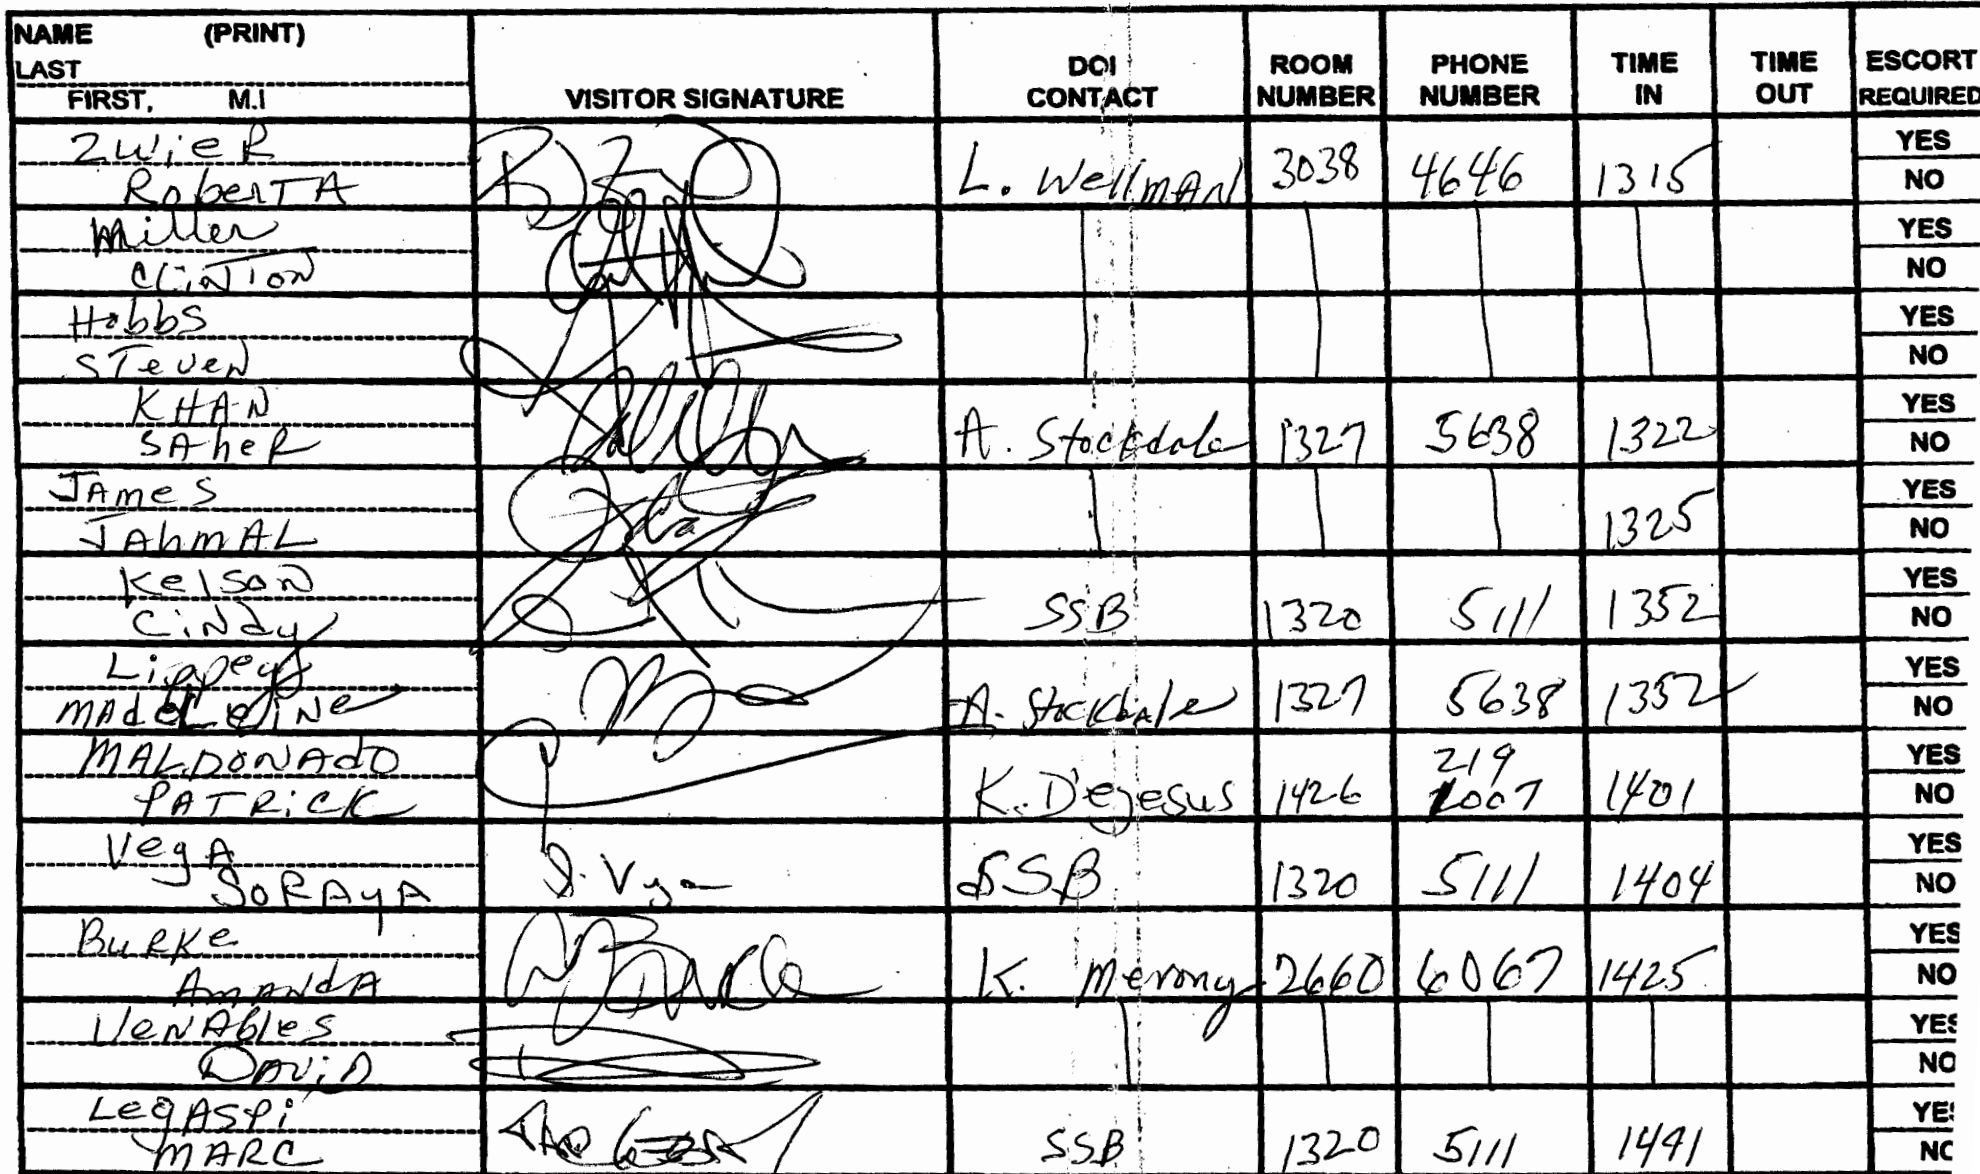 NAME (PRINT)
LAST
FIRST, M.I
VISITOR SIGNATURE
DOI CONTACT
ROOM NUMBER
PHONE NUMBER
TIME IN
TIME OUT
ESCORT REQUIRED
ZWieR
RoberTA
L. WellMAN 3038 4646 1315
YES
NO
Miller
CLiNTON
YES
NO
Hobbs
STeveN
YES
NO
KHAN
SAheR
A. Stockdale 1327 5638 1322
YES
NO
JAmes
JAhmAL
1325
YES
NO
Kelson
CiNdy
SSB 1320 5111 1352
YES
NO
Lippey
MAdeLeiNe
A. Stockdale 1327 5638 1352
YES
NO
MALDONAdO
PATRiCK
K. D'ejesus 1426 219 2007 1401
YES
NO
VegA
SORAyA
S. Vega
SSB 1320 5111 1404
YES
NO
BuRKe
AmANdA
A Burke
K. Merony 2660 6067 1425
YES
NO
VeNAbles
DAViD
YES
NO
LegASPi
MARC
SSB 1320 5111 1441
YES
NO